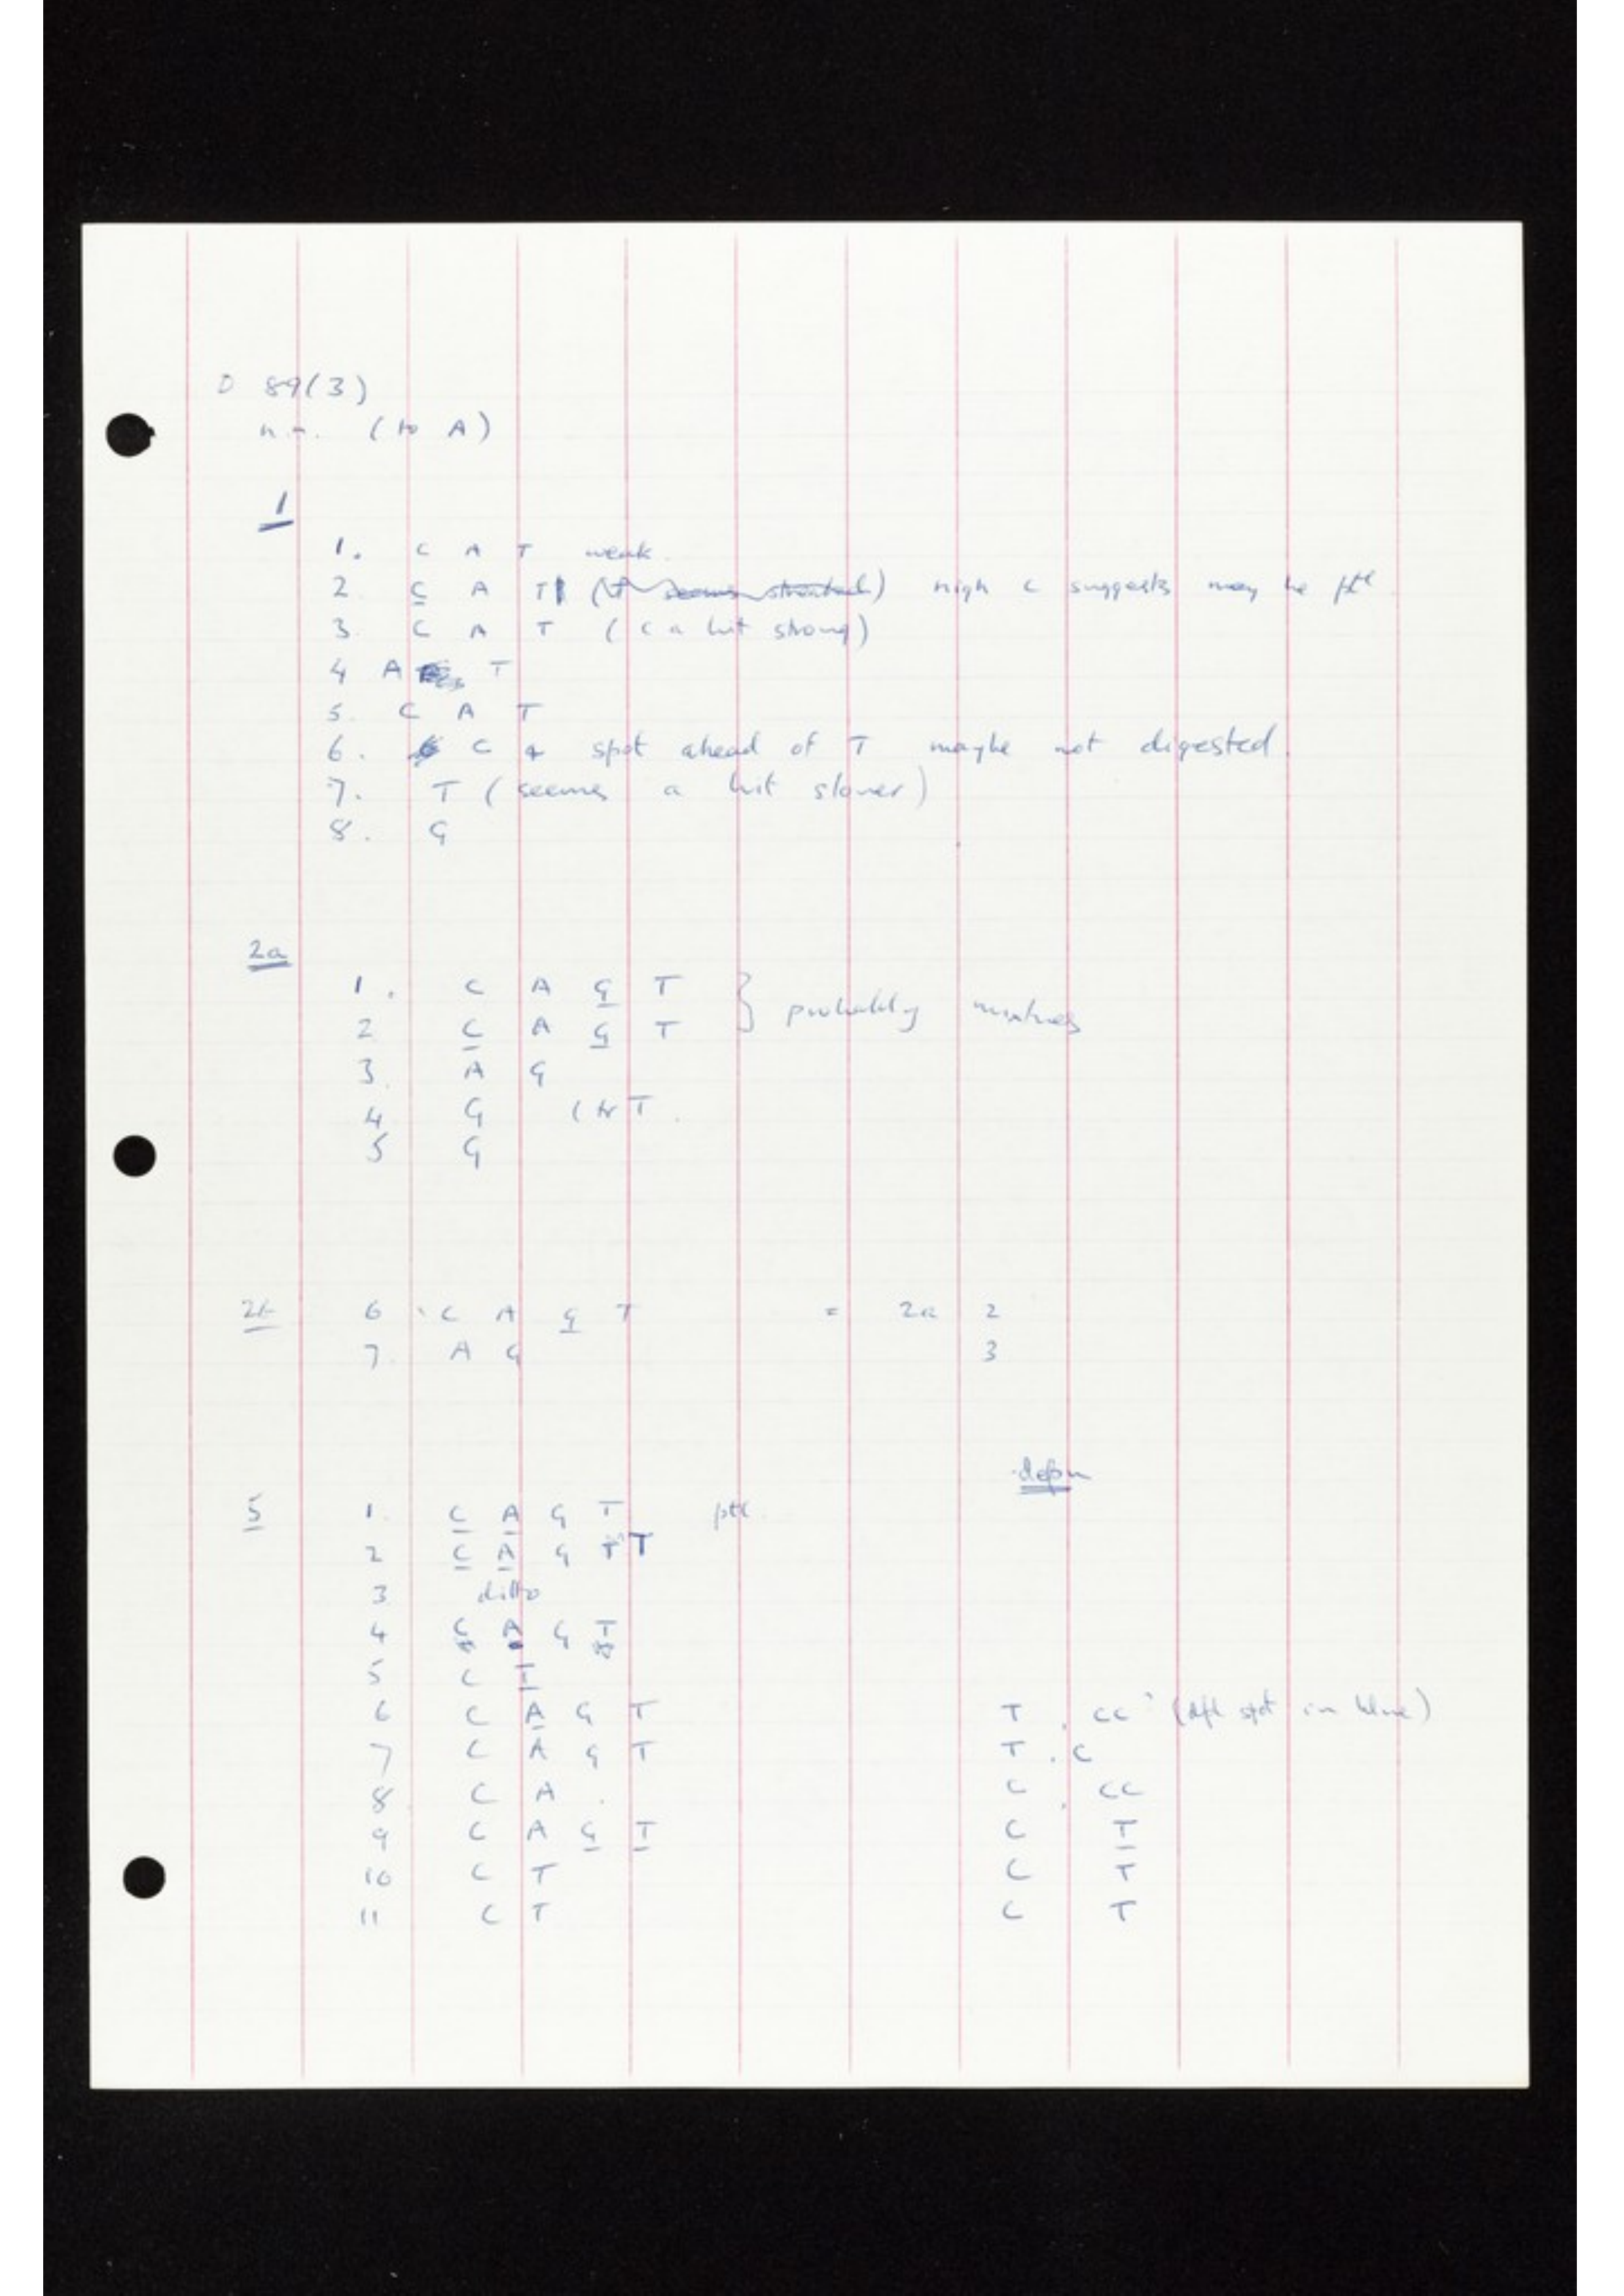 D 89(3)
n.n. (to A)
1
1. C A T weak.
2. C A T (T seems streaked) high C suggests may be ptl
3. C A T (C a bit strong)
4 A T
5. C A T
6. C + spot ahead of T maybe not digested.
7. T (seems a bit slower)
8. G
2a
1. C A G T } probably mixtures
2 C A G T
3. A G
4 G (tr T.
5 G
2b 6 C A G T = 2a 2
7. A G 3
depu
5 1. C A G T ptl.
2 C A G T T
3 ditto
4 C A G T
5 C T
6 C A G T T . CC (spot in blue)
7 C A G T T . C
8. C A . C . CC
9 C A G T C T
10 C T C T
11 C T C T